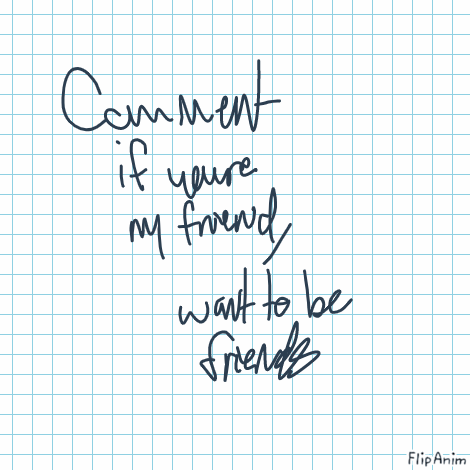 Comment
if youre
my friend/
want to be
friends
FlipAnim